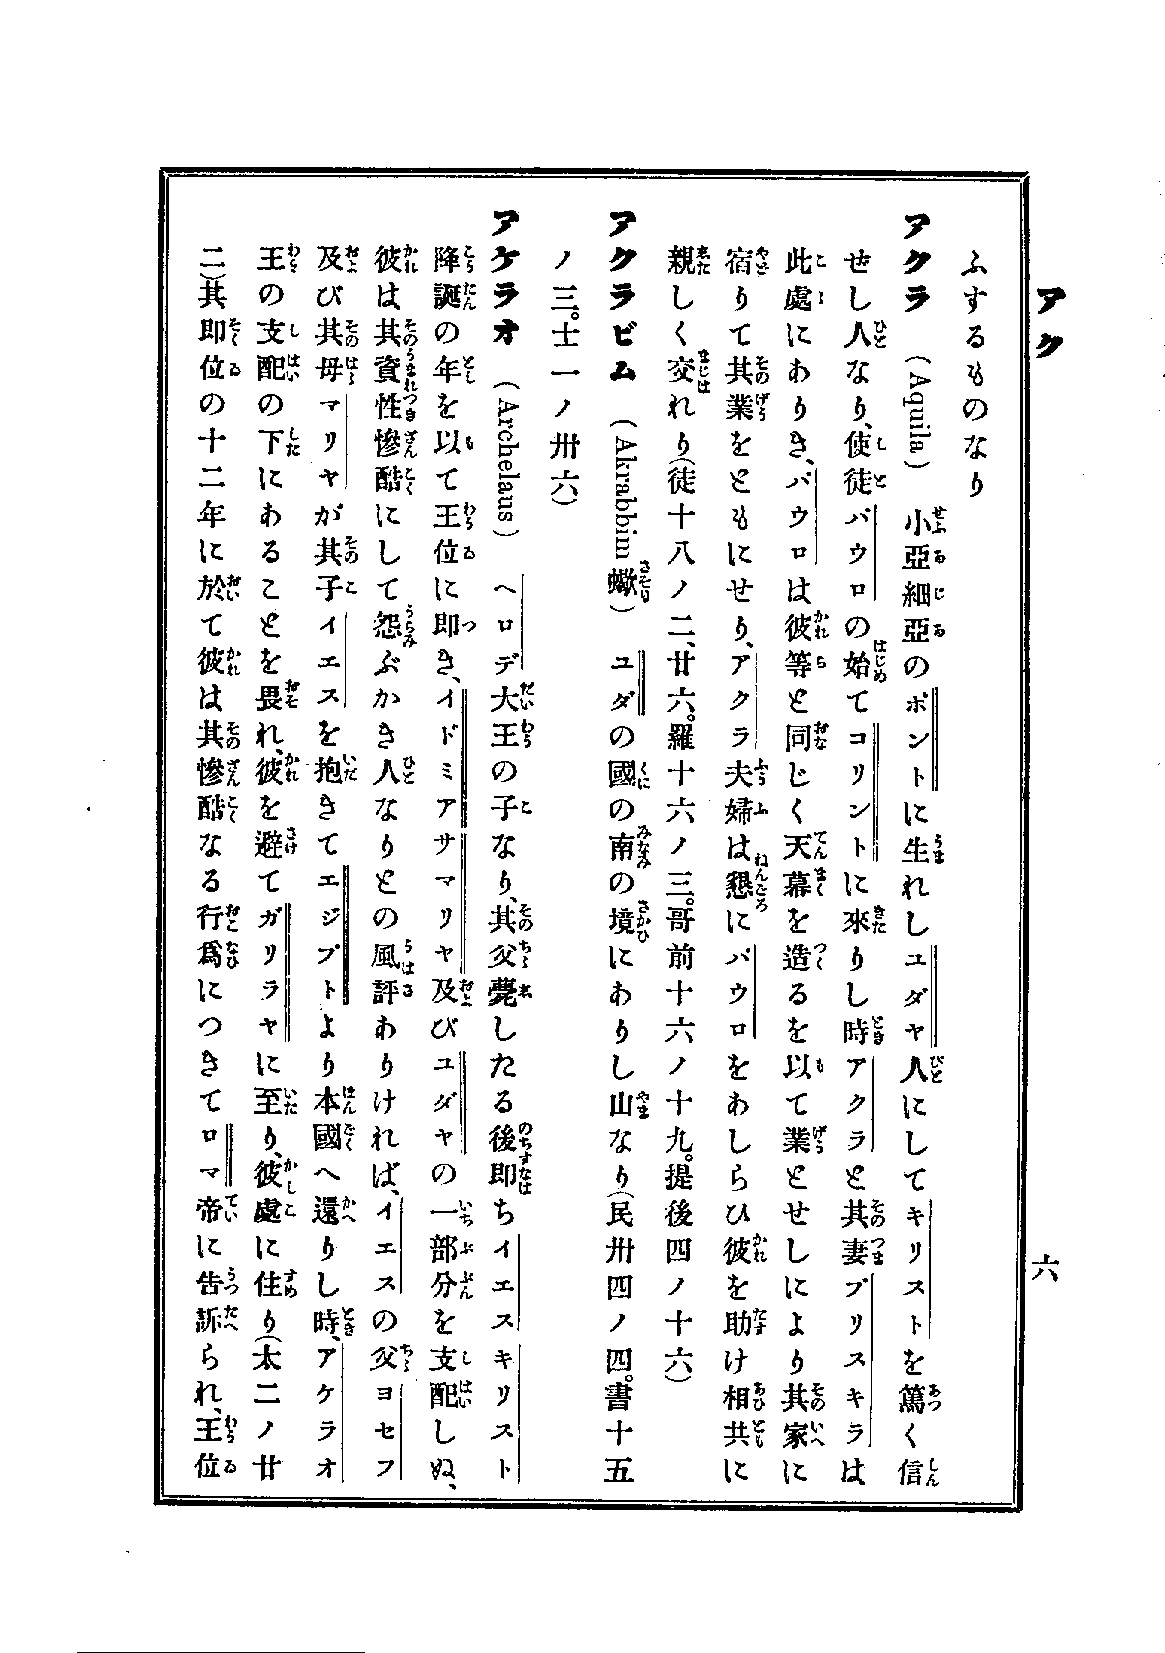 アク
六
ふするものなり
アクラ (Aquila) 小亞細亞のポントに生れしユダヤ人にしてキリストを篤く信
せし人なり、使徒パウロの始てコリントに來りし時アクラと其妻プリスキラは
此處にありき、パウロは彼等と同じく天幕を造るを以て業とせしにより其家に
宿りて其業をともにせり、アクラ夫婦は懇にパウロをあしらひ彼を助け相共に
親しく交れり(徒十八ノ二、廿六。羅十六ノ三。哥前十六ノ十九。提後四ノ十六)
アクラビム (Akrabbim 蠍) ユダの國の南の境にありし山なり(民卅四ノ四。書十五
ノ三。士一ノ卅六)
アケラオ (Archelaus) ヘロデ大王の子なり、其父薨したる後即ちイエスキリスト
降誕の年を以て王位に即き、イドミアサマリヤ及びユダヤの一部分を支配しぬ、
彼は其資性慘酷にして怨ぶかき人なりとの風評ありければ、イエスの父ヨセフ
及び其母マリヤが其子イエスを抱きてエジプトより本國へ還りし時、アケラオ
王の支配の下にあることを畏れ、彼を避てガリラヤに至り、彼處に住り(太二ノ廿
二)其即位の十二年に於て彼は其慘酷なる行爲につきてロマ帝に告訴られ、王位